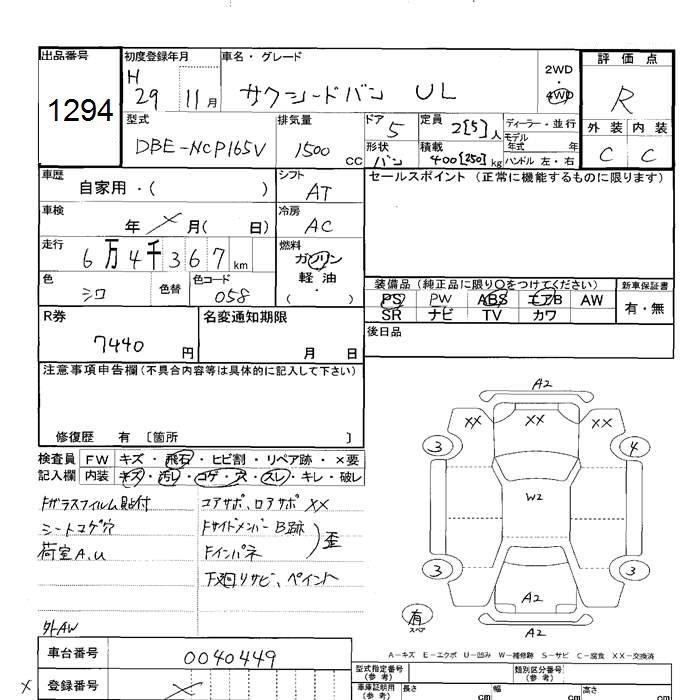 出品番号
1294
初度登録年月
H
29 11月
車名・グレード
サクシードバン UL
2WD
4WD
評価点
R
外装 内装
C C
型式
DBE-NCP165V
排気量
1500 CC
ドア
5
形状
バン
定員
2[5]人
積載
400[250]kg
ディーラー・並行
モデル年式 年
ハンドル 左・右
車歴
自家用・( )
シフト
AT
セールスポイント (正常に機能するものに限ります)
車検
年 × 月( 日)
冷房
AC
走行
6万4千367km
燃料
ガソリン
軽油
( )
色
シロ
色替
色コード
058
装備品 (純正品に限り○をつけてください)
PS PW ABS エアB AW
SR ナビ TV カワ
新車保証書
有・無
R券
7440円
名変通知期限
月 日
後日品
注意事項申告欄(不具合内容等は具体的に記入して下さい)
修復歴 有 [箇所 ]
検査員 FW キズ・飛石・ヒビ割・リペア跡・×要
記入欄 内装 キズ・汚レ・コゲ・穴・スレ・キレ・破レ
Fガラスフィルム貼付
シートコゲ穴
荷室A.U
外AW
コアサポ、ロアサポ XX
FサイドメンバーB跡
Fインパネ
歪
下廻リサビ、ペイント
A2
XX XX XX
3 4
W2
3 3
A2
有
スペア
A2
A-キズ E-エクボ U-凹み W-補修跡 S-サビ C-腐食 XX-交換済
車台番号
0040449
× 登録番号
×
型式指定番号
(参考)
類別区分番号
(参考)
車庫証明用
(参考)
長さ cm
幅 cm
高さ cm